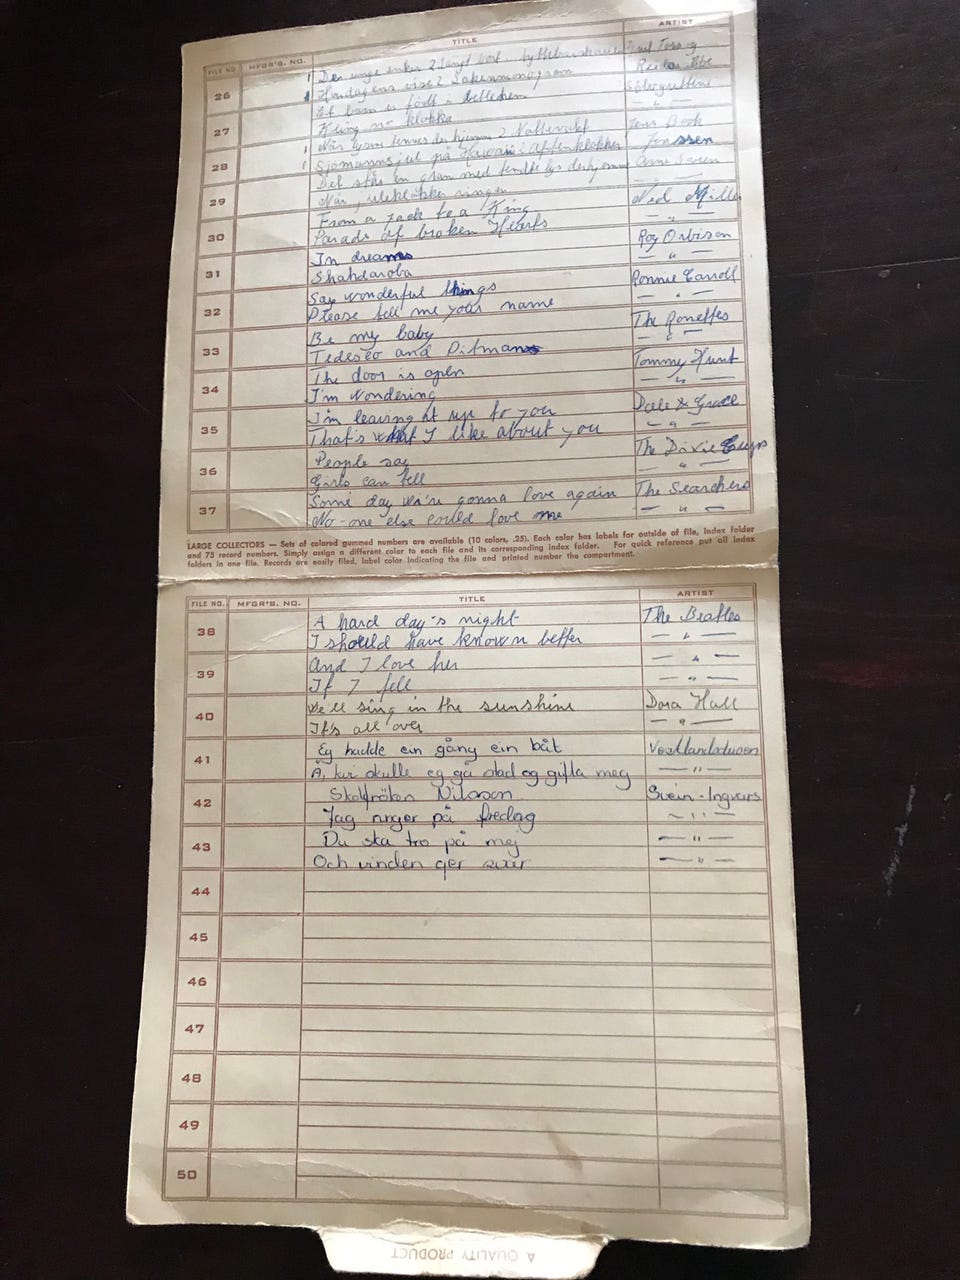 FILE NO. MFGR'S. NO. TITLE ARTIST
26 Den unge enken 2 Langt bort
Hardagens vise 2 Lakenmonogram Reidar Bbe
27 Et barn er født i betlehem Sölvguttene
Kling no klokka — " —
28 Når lysene tennes der hjemme 2 Nattevakt Jens Book
Sjömannsjul på Hawaii 2 Aftenklokker Jenssen
29 Det står en glam med tendte lys derhjemme
Når juleklokker ringer — " —
30 From a jack to a King Ned Mille
Parade of broken Hearts — " —
31 In dreams Roy Orbison
Shahdaroba — " —
32 Say wonderful things Ronnie Carroll
Please tell me your name — " —
33 Be my baby The Ronettes
Tedesco and Pitman — " —
34 The door is open Tommy Hunt
I'm wondering — " —
35 I'm leaving it up to you Dale & Grace
That's what I like about you — " —
36 People say The Dixie Cups
Girls can tell — " —
37 Some day we're gonna love again The Searchers
No-one else could love me — " —
LARGE COLLECTORS — Sets of colored gummed numbers are available (10 colors, .25). Each color has labels for outside of file, index folder
and 75 record numbers. Simply assign a different color to each file and its corresponding index folder. For quick reference put all index
folders in one file. Records are easily filed, label color indicating the file and printed number the compartment.
FILE NO. MFGR'S. NO. TITLE ARTIST
38 A hard day's night The Beatles
I should have known better — " —
39 And I love her — " —
If I fell — " —
40 We'll sing in the sunshine Dora Hall
It's all over — " —
41 Eg hadde ein gång ein båt Vestlandsduoen
Å, kvi skulle eg gå stad og gifta meg — " —
42 Skolfröken Nilsson Svein-Ingvars
Jag ringer på fredag — " —
43 Du ska tro på mej — " —
Och vinden ger svar — " —
44
45
46
47
48
49
50
A QUALITY PRODUCT